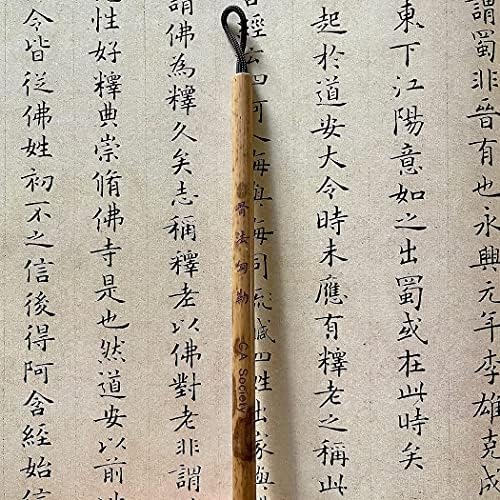 謂蜀非晉有也永興元年李雄克成
東下江陽意如之出蜀或在此時矣
起於道安大令時未應有釋老之稱此
經云四河入海與海同四姓出家與
謂佛為釋久矣志稱釋老以佛對老非謂
性好釋典崇脩佛寺是也然道安以前
令皆從佛姓初不之信後得阿含經始信
骨法 勒 CA Society